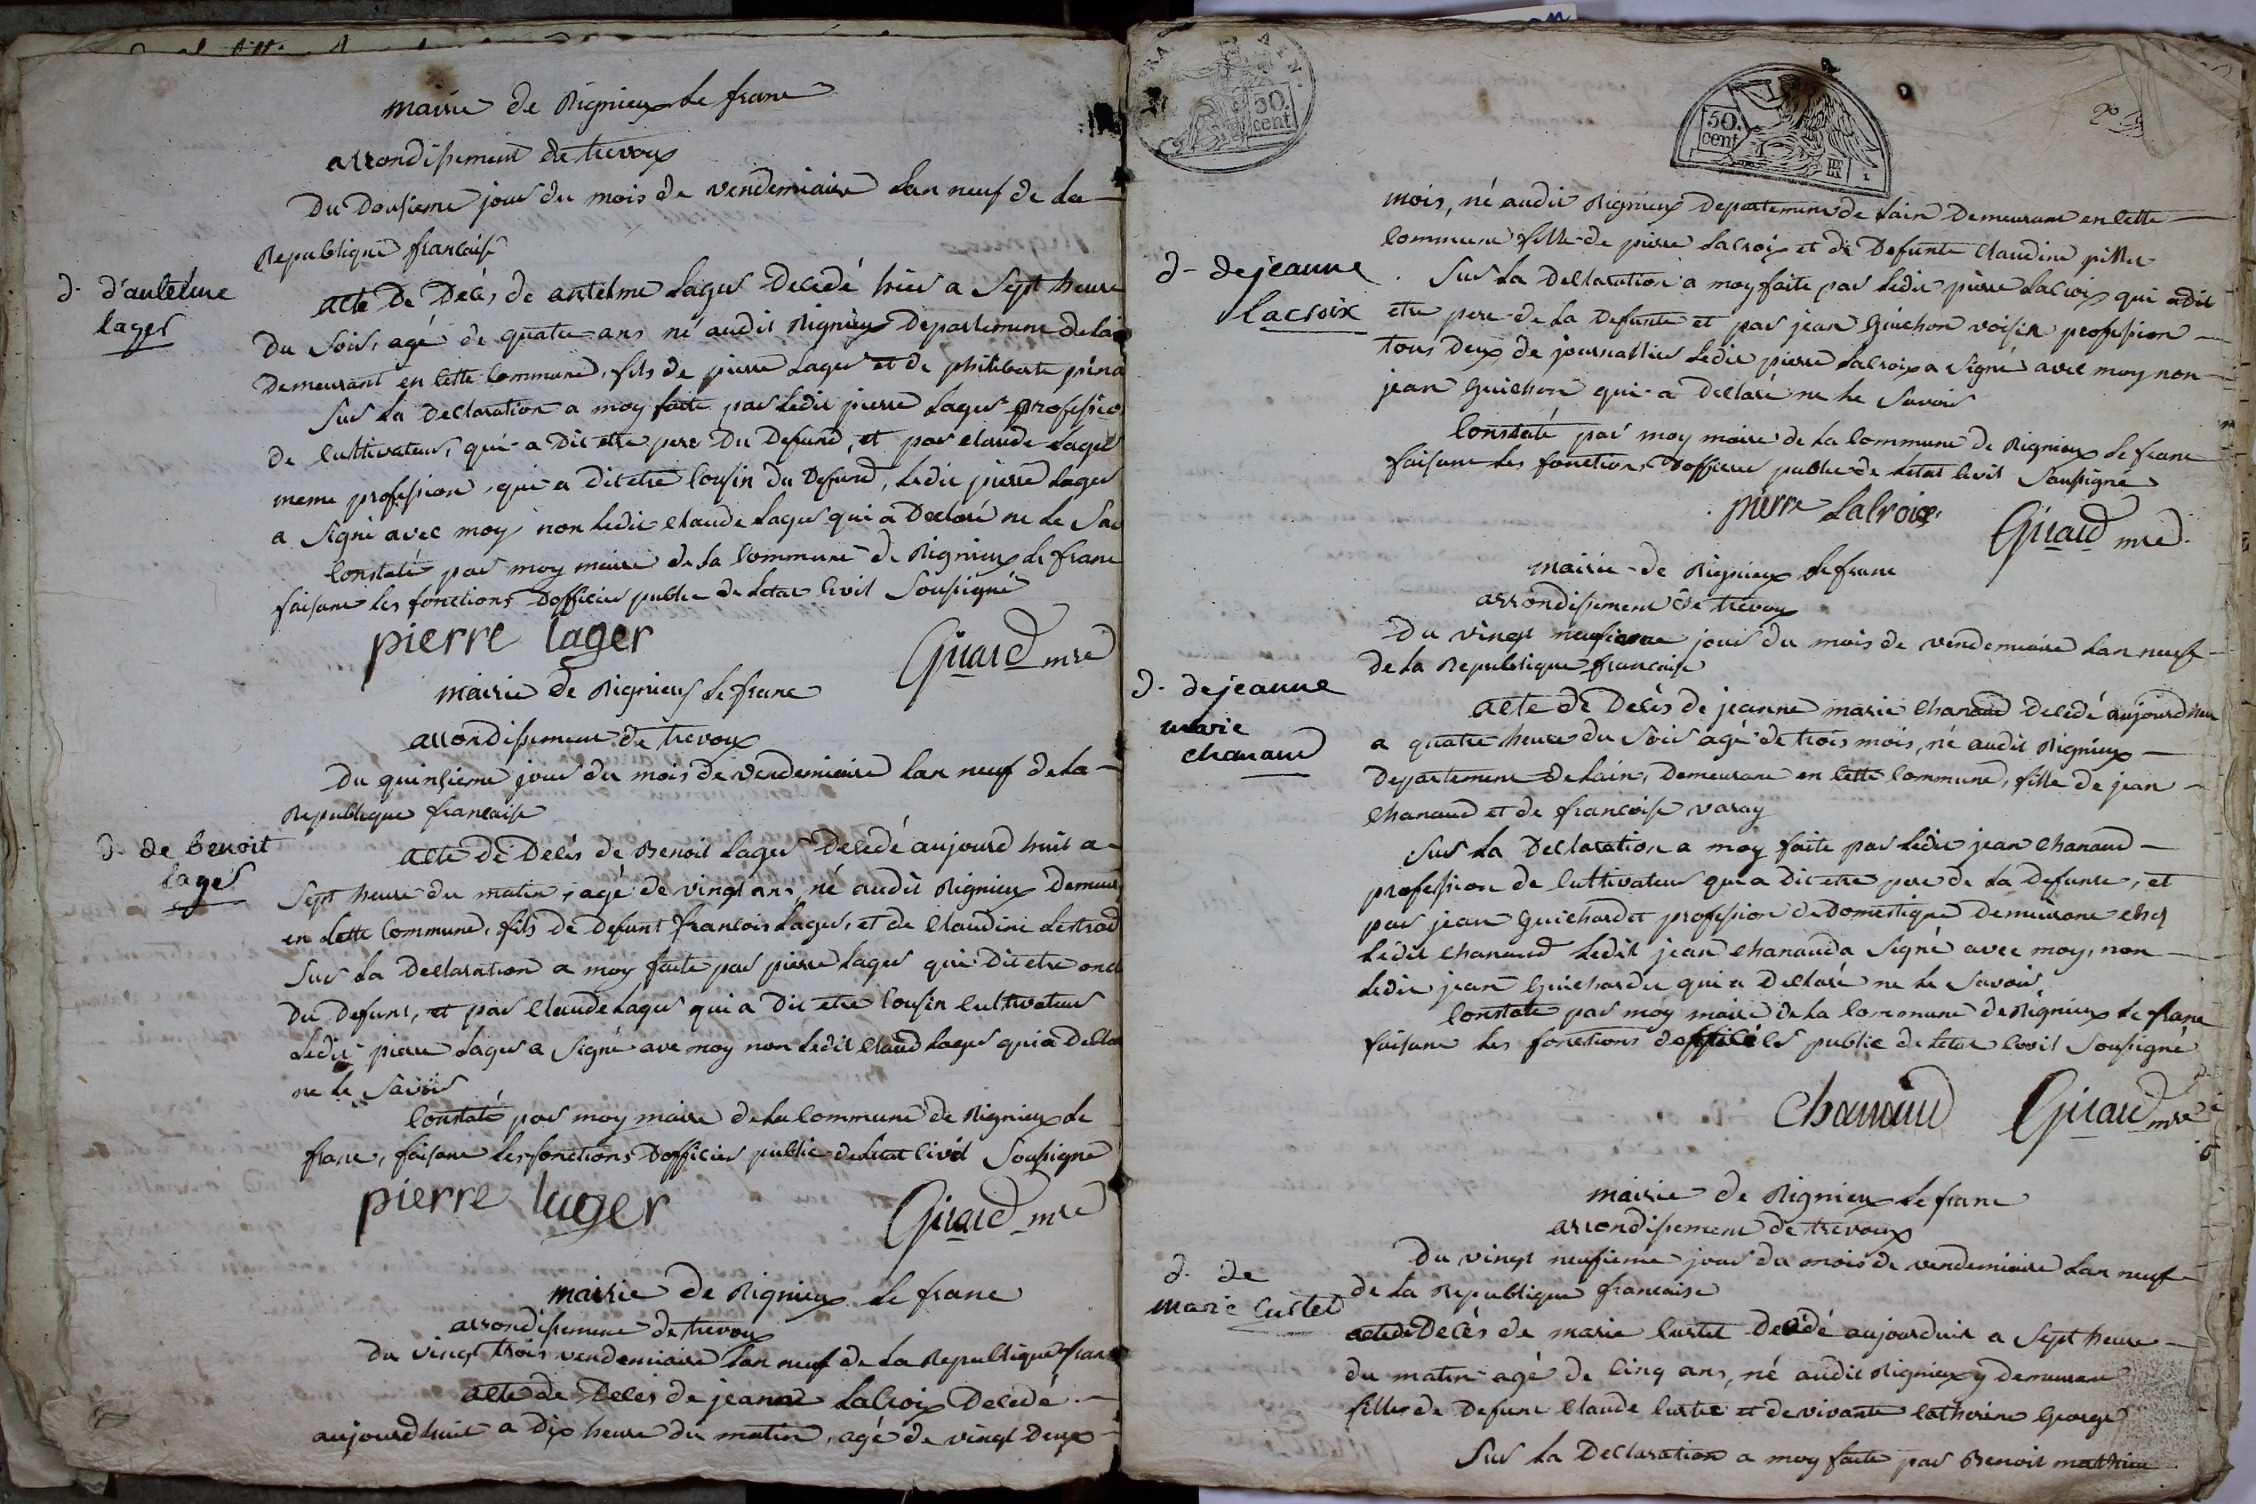 mairie de Rignieux le franc
arrondissement de trevoux
Du Dousieme jour du mois de vendemiaire lan neuf de la
Republique francaise
d. d'antelme
lager
acte De Deces de antelme Lager Decedé hier a Sept heure
du Soir, agé de quatre ans né audit Rignieux Departement de lai
Demeurant en cette Commune, fils de pierre Lager et de philiberte
Sur La Declaration a moy faite par ledit pierre Lager professio
de Cultivateur, qui a Dit etre pere Du Defund, et par Claude Lager
meme profession, qui a Dit etre Cousin du Defund, Ledit pierre Lager
a Signé avec moy, non ledit Claude Lager qui a Declaré ne Le Sav
Constaté par moy maire de La Commune de Rignieux Le franc
faisant les fonctions Dofficier public de Letat Civil Soussigné
pierre lager
Girard mre
mairie de Rignieux Le franc
arrondissement de trevoux
Du quinsieme jour du mois de vendemiaire lan neuf de La
Republique francaise
d. de Benoit
lager
acte de Decés de Benoit Lager Decedé aujourd huit a
Sept heure du matin, agé de vingt ans, né audit Rignieux Demeur
en Cette Commune, fils de Defunt francois Lager, et de Claudine
Sur La Declaration a moy faite par pierre Lager qui Dit etre oncl
Du Defunt, et par Claude Lager qui a Dit etre Cousin Cultivateur
Ledit pierre Lager a Signé ave moy non Ledit Claud Lager qui a Decla
ne le Savoir
Constaté par moy maire de La Commune de Rignieux Le
franc, faisant Les fonctions Dofficier public de Letat Civil Soussigne
pierre lager
Girard mre
mairie de Rignieux Le franc
arrondissement de trevoux
Du vingt trois vendemiaire Lan neuf de La Republique fran
acte de Deces de jeanne LaCroix Decedé
aujourd huit a Dix heure du matin, agé de vingt Deux
FRA
50.
cent
50.
cent
mois, né audit Rignieux Departement de Lain Demeurant en Cette
Commune fille de pierre LaCroix et de Defunte Claudine
d - de jeanne
Lacroix
Sur La Declaration a moy faite par Ledit pierre LaCroix qui a dit
etre pere de La Defunte et par jean Guichon voisin profession
tous Deux de journallier Ledit pierre LaCroix a Signé avec moy non
jean Guichon qui a Declaré ne le Savoir
Constaté par moy maire de La Commune de Rignieux Le franc
faisant Les fonctions Dofficier public de Letat Civil Soussigné
pierre LaCroix
Girard mre
mairie de Rignieux Le franc
arrondissement de trevoux
Du vingt neufieme jour Du mois de vendemiaire Lan neuf
de La Republique francaise
d. de jeanne
marie
chanaud
acte de Decés de jeanne marie Chanaud Decedé aujourdhui
a quatre heure du Soir agé de trois mois, né audit Rignieux
Departement de Lain, Demeurant en Cette Commune, fille de jean
Chanaud et de francoise varay
Sur La Declaration a moy faite par Ledit jean Chanaud
profession de Cultivateur qui a Dit etre pere de La Defunte, et
par jean Guichardet profession de Domestique Demeurant chez
Ledit Chanaud Ledit jean Chanaud a Signé avec moy, non
Ledit jean Guichardet qui a Declaré ne le Savoir
Constaté par moy maire de La Commune de Rignieux Le franc
faisant Les fonctions dofficier public de Letat Civil Soussigné
Chanaud
Girard mre
mairie de Rignieux Le franc
arrondissement de trevoux
Du vingt neufieme jour du mois de vendemiaire Lan neuf
de La Republique francaise
d. de
marie Curtet
acte de Decés de marie Curtet Decedé aujourduit a Sept heure
du matin agé de Cinq ans, né audit Rignieux y Demeurant
fille de Defunt Claude Curtet et de vivante Catherine George
Sur La Declaration a moy faite par Benoit mathieu